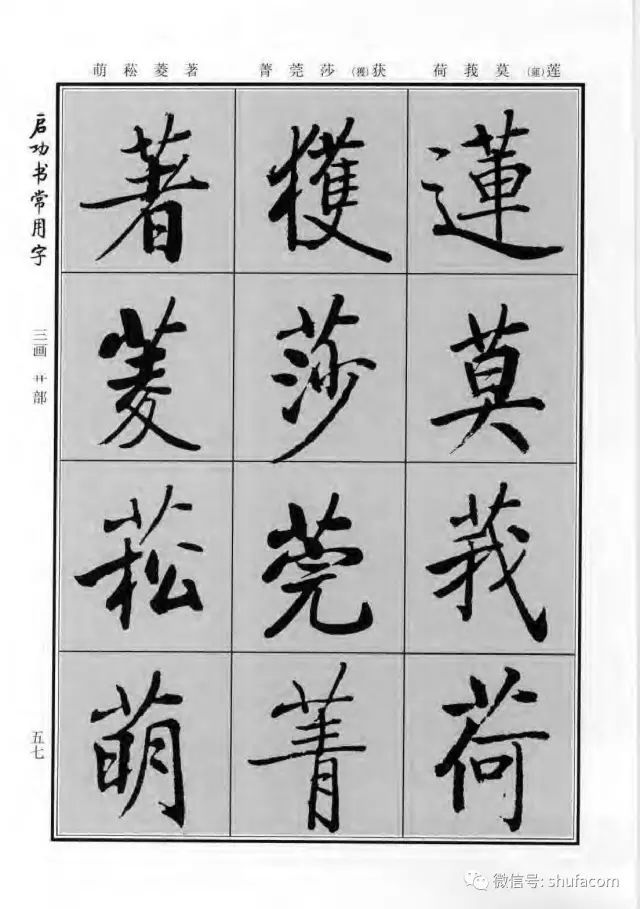 莲(蓮)莫莪荷 获(獲)莎莞菁 著菱菘萌
蓮莫莪荷
獲莎莞菁
著菱菘萌
启功书常用字
三画 艹部
五七
微信号: shufacom